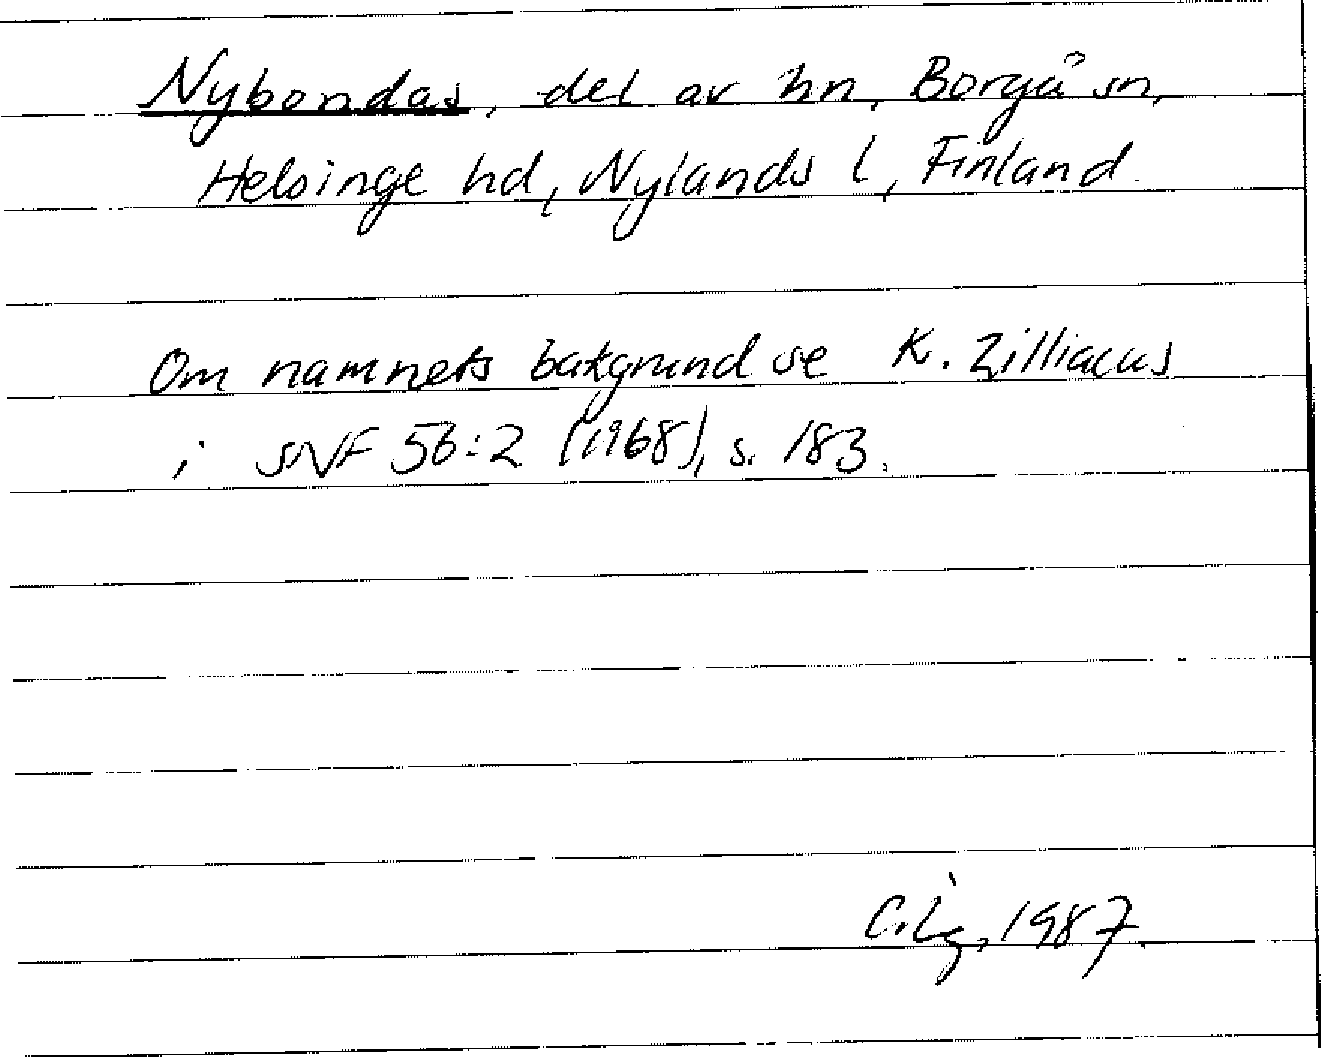 Nybondas, del av hn, Borgå sn,
Helsinge hd, Nylands l, Finland.
Om namnets bakgrund se K. Zilliacus
i SNF 56:2 (1968), s. 183.
1987.